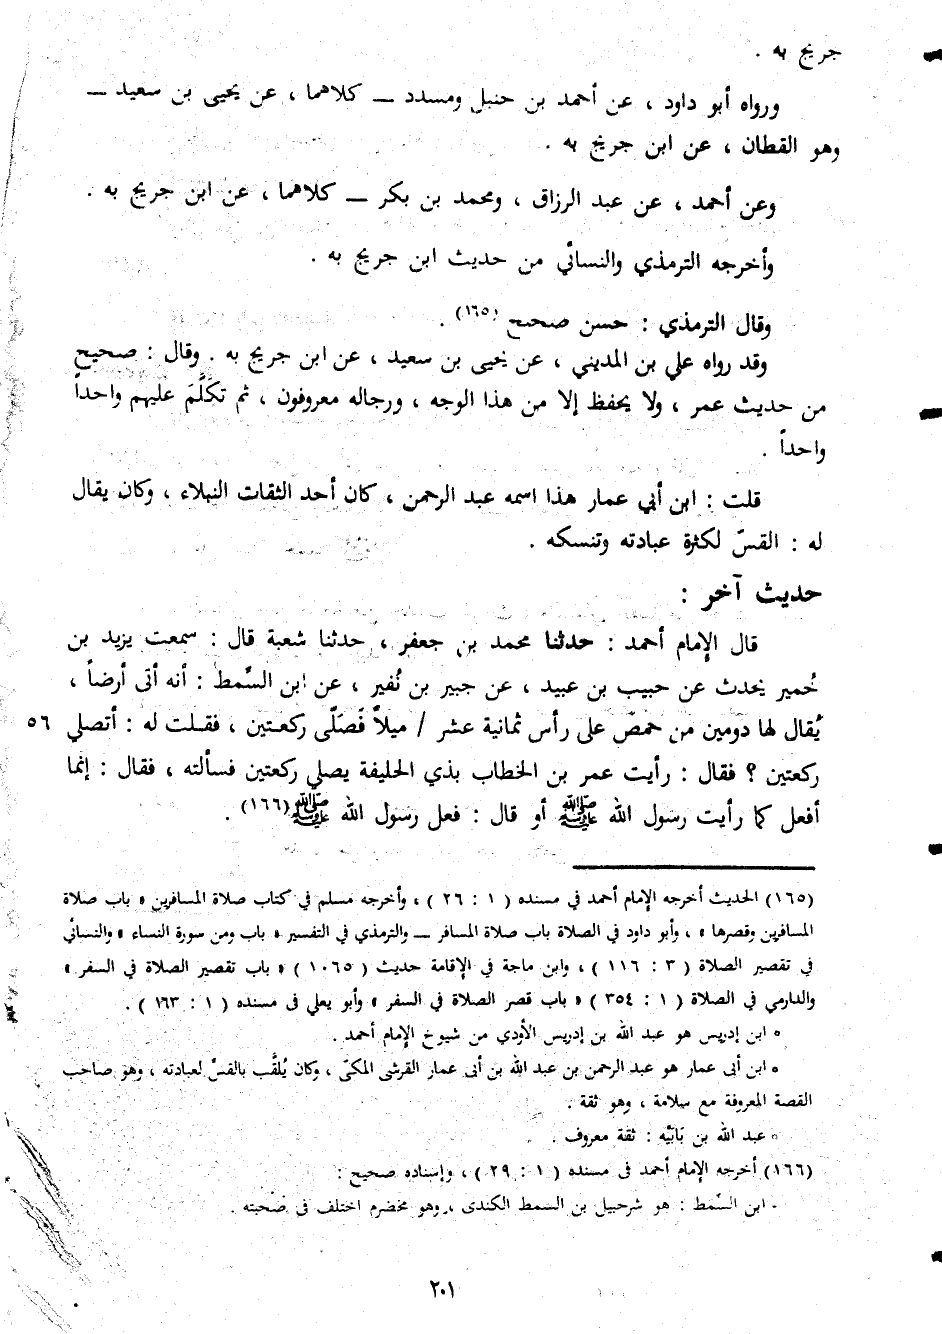 جريج به .
ورواه أبو داود ، عن أحمد بن حنبل ومسدد ــ كلاهما ، عن يحيى بن سعيد ــ
وهو القطان ، عن ابن جريج به .
وعن أحمد ، عن عبد الرزاق ، ومحمد بن بكر ــ كلاهما ، عن ابن جريج به .
وأخرجه الترمذي والنسائي من حديث ابن جريج به .
وقال الترمذي : حسن صحيح (١٦٥) .
وقد رواه علي بن المديني ، عن يحيى بن سعيد ، عن ابن جريج به . وقال : صحيح
من حديث عمر ، ولا يحفظ إلا من هذا الوجه ، ورجاله معروفون ، ثم تكَلَّمَ عليهم واحداً
واحداً .
قلت : ابن أبي عمار هذا اسمه عبد الرحمن ، كان أحد الثقات النبلاء ، وكان يقال
له : القسّ لكثرة عبادته وتنسكه .
حديث آخر :
قال الإمام أحمد : حدثنا محمد بن جعفر ، حدثنا شعبة قال : سمعت يزيد بن
خُمير يحدث عن حبيب بن عبيد ، عن جبير بن نُفير ، عن ابن السِّمط : أنه أتى أرضاً ،
يُقال لها دومين من حمص على رأس ثمانية عشر / ميلاً فَصَلّى ركعـتين ، فقـلت له : أتصلي ٥٦
ركعتين ؟ فقال : رأيت عمر بن الخطاب بذي الحليفة يصلي ركعتين فسألته ، فقال : إنما
أفعل كما رأيت رسول الله ﷺ أو قال : فعل رسول الله ﷺ(١٦٦) .
(١٦٥) الحديث أخرجه الإمام أحمد في مسنده ( ١ : ٢٦ ) ، وأخرجه مسلم في كتاب صلاة المسافرين « باب صلاة
المسافرين وقصرها » ، وأبو داود في الصلاة باب صلاة المسافر ــ والترمذي في التفسير « باب ومن سورة النساء » والنسائي
في تقصير الصلاة ( ٣ : ١١٦ ) ، وابن ماجة في الإقامة حديث ( ١٠٦٥ ) « باب تقصير الصلاة في السفر »
والدارمي في الصلاة ( ١ : ٣٥٤ ) « باب قصر الصلاة في السفر » وأبو يعلي في مسنده ( ١ : ١٦٣ ) .
٥ ابن إدريس هو عبد الله بن إدريس الأودي من شيوخ الإمام أحمد .
٥ ابن أبى عمار هو عبد الرحمن بن عبد الله بن أبى عمار القرشى المكىّ ، وكان يُلقَّب بالقسّ لعبادته ، وهو صاحب
القصة المعروفة مع سلامة ، وهو ثقة .
٥ عبد الله بن بَابَيْه : ثقة معروف .
(١٦٦) أخرجه الإمام أحمد فى مسنده ( ١ : ٢٩ ) ، وإسناده صحيح :
- ابن السِّمط : هو شرحبيل بن السمط الكندى ، وهو مخضرم اختلف فى صُحبته .
٢٠١